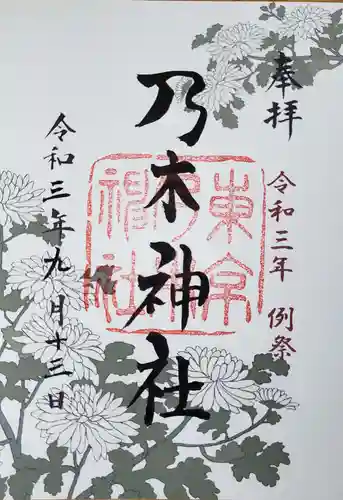 奉拝
令和三年 例祭
乃木神社
令和三年九月十三日
東京
乃木
神社